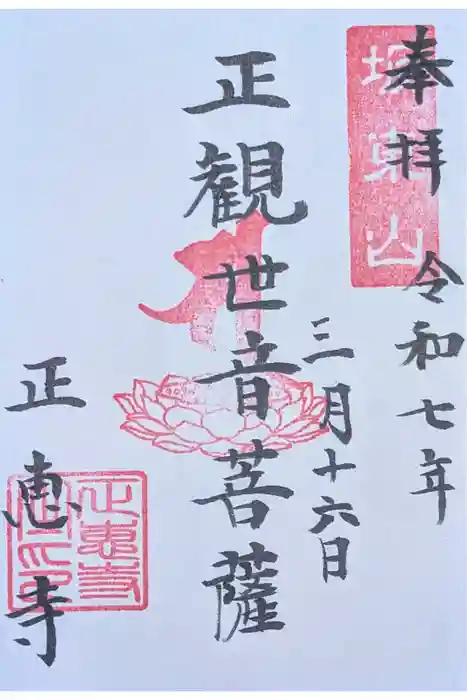 奉拝
令和七年
三月十六日
正観世音菩薩
正恵寺
正恵寺